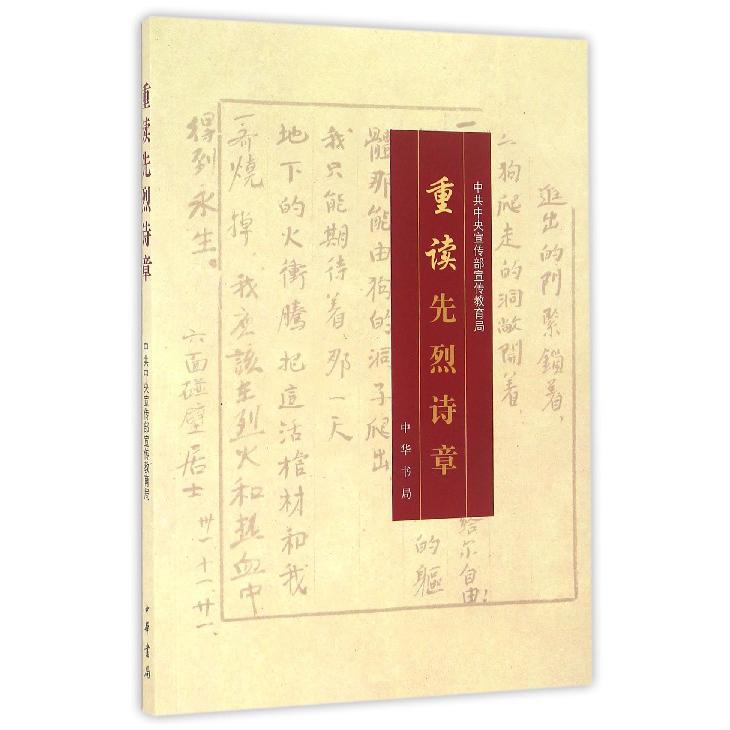 重读先烈诗章
中共中央宣传部宣传教育局
中华书局
中共中央宣传部宣传教育局
重读先烈诗章
中华书局
進出的门緊鎖着，
为狗爬走的洞敞開着，
一
给尔自由！
的軀
體那能由狗的洞子爬出
我只能期待着那一天
地下的火衝騰把這活棺材和我
一齊燒掉，我應該在烈火和热血中
得到永生。
六面碰壁居士
卅一、十一、廿一